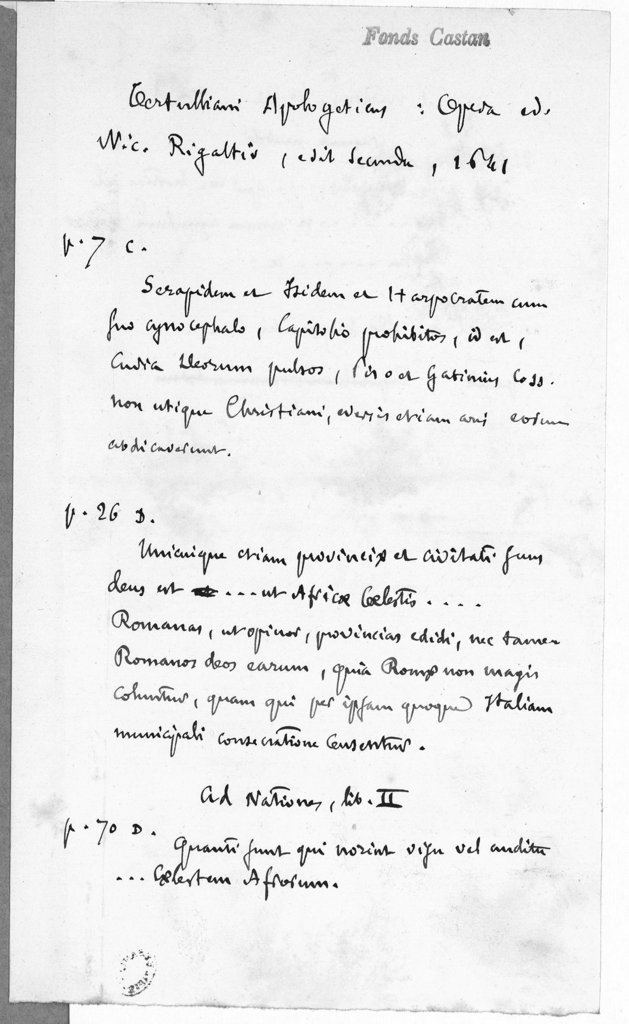 Fonds Castan
Tertulliani Apologeticus : Opera ed.
Nic. Rigaltis, edit secunda, 1641
p. 7 C.
Serapidem et Isidem et Harpocratem cum
suo cynocephalo, Capitolio prohibitos, id est,
Curia Deorum pulsos, Piso et Gabinius Coss.
non utique Christiani, eversis etiam aris eorum
abdicaverunt.
p. 26 D.
Unicuique etiam provinciæ et civitati suus
deus est .... ut Africæ Cælestis ....
Romanas, ut opinor, provincias edidi, nec tamen
Romanos deos earum, quia Romæ non magis
coluntur, quam qui per ipsam quoque Italiam
municipali consecratione censentur.
Ad Nationes, lib. II
p. 70 D.
Quanti sunt qui norint visu vel auditu
... Cælestem Afrorum.